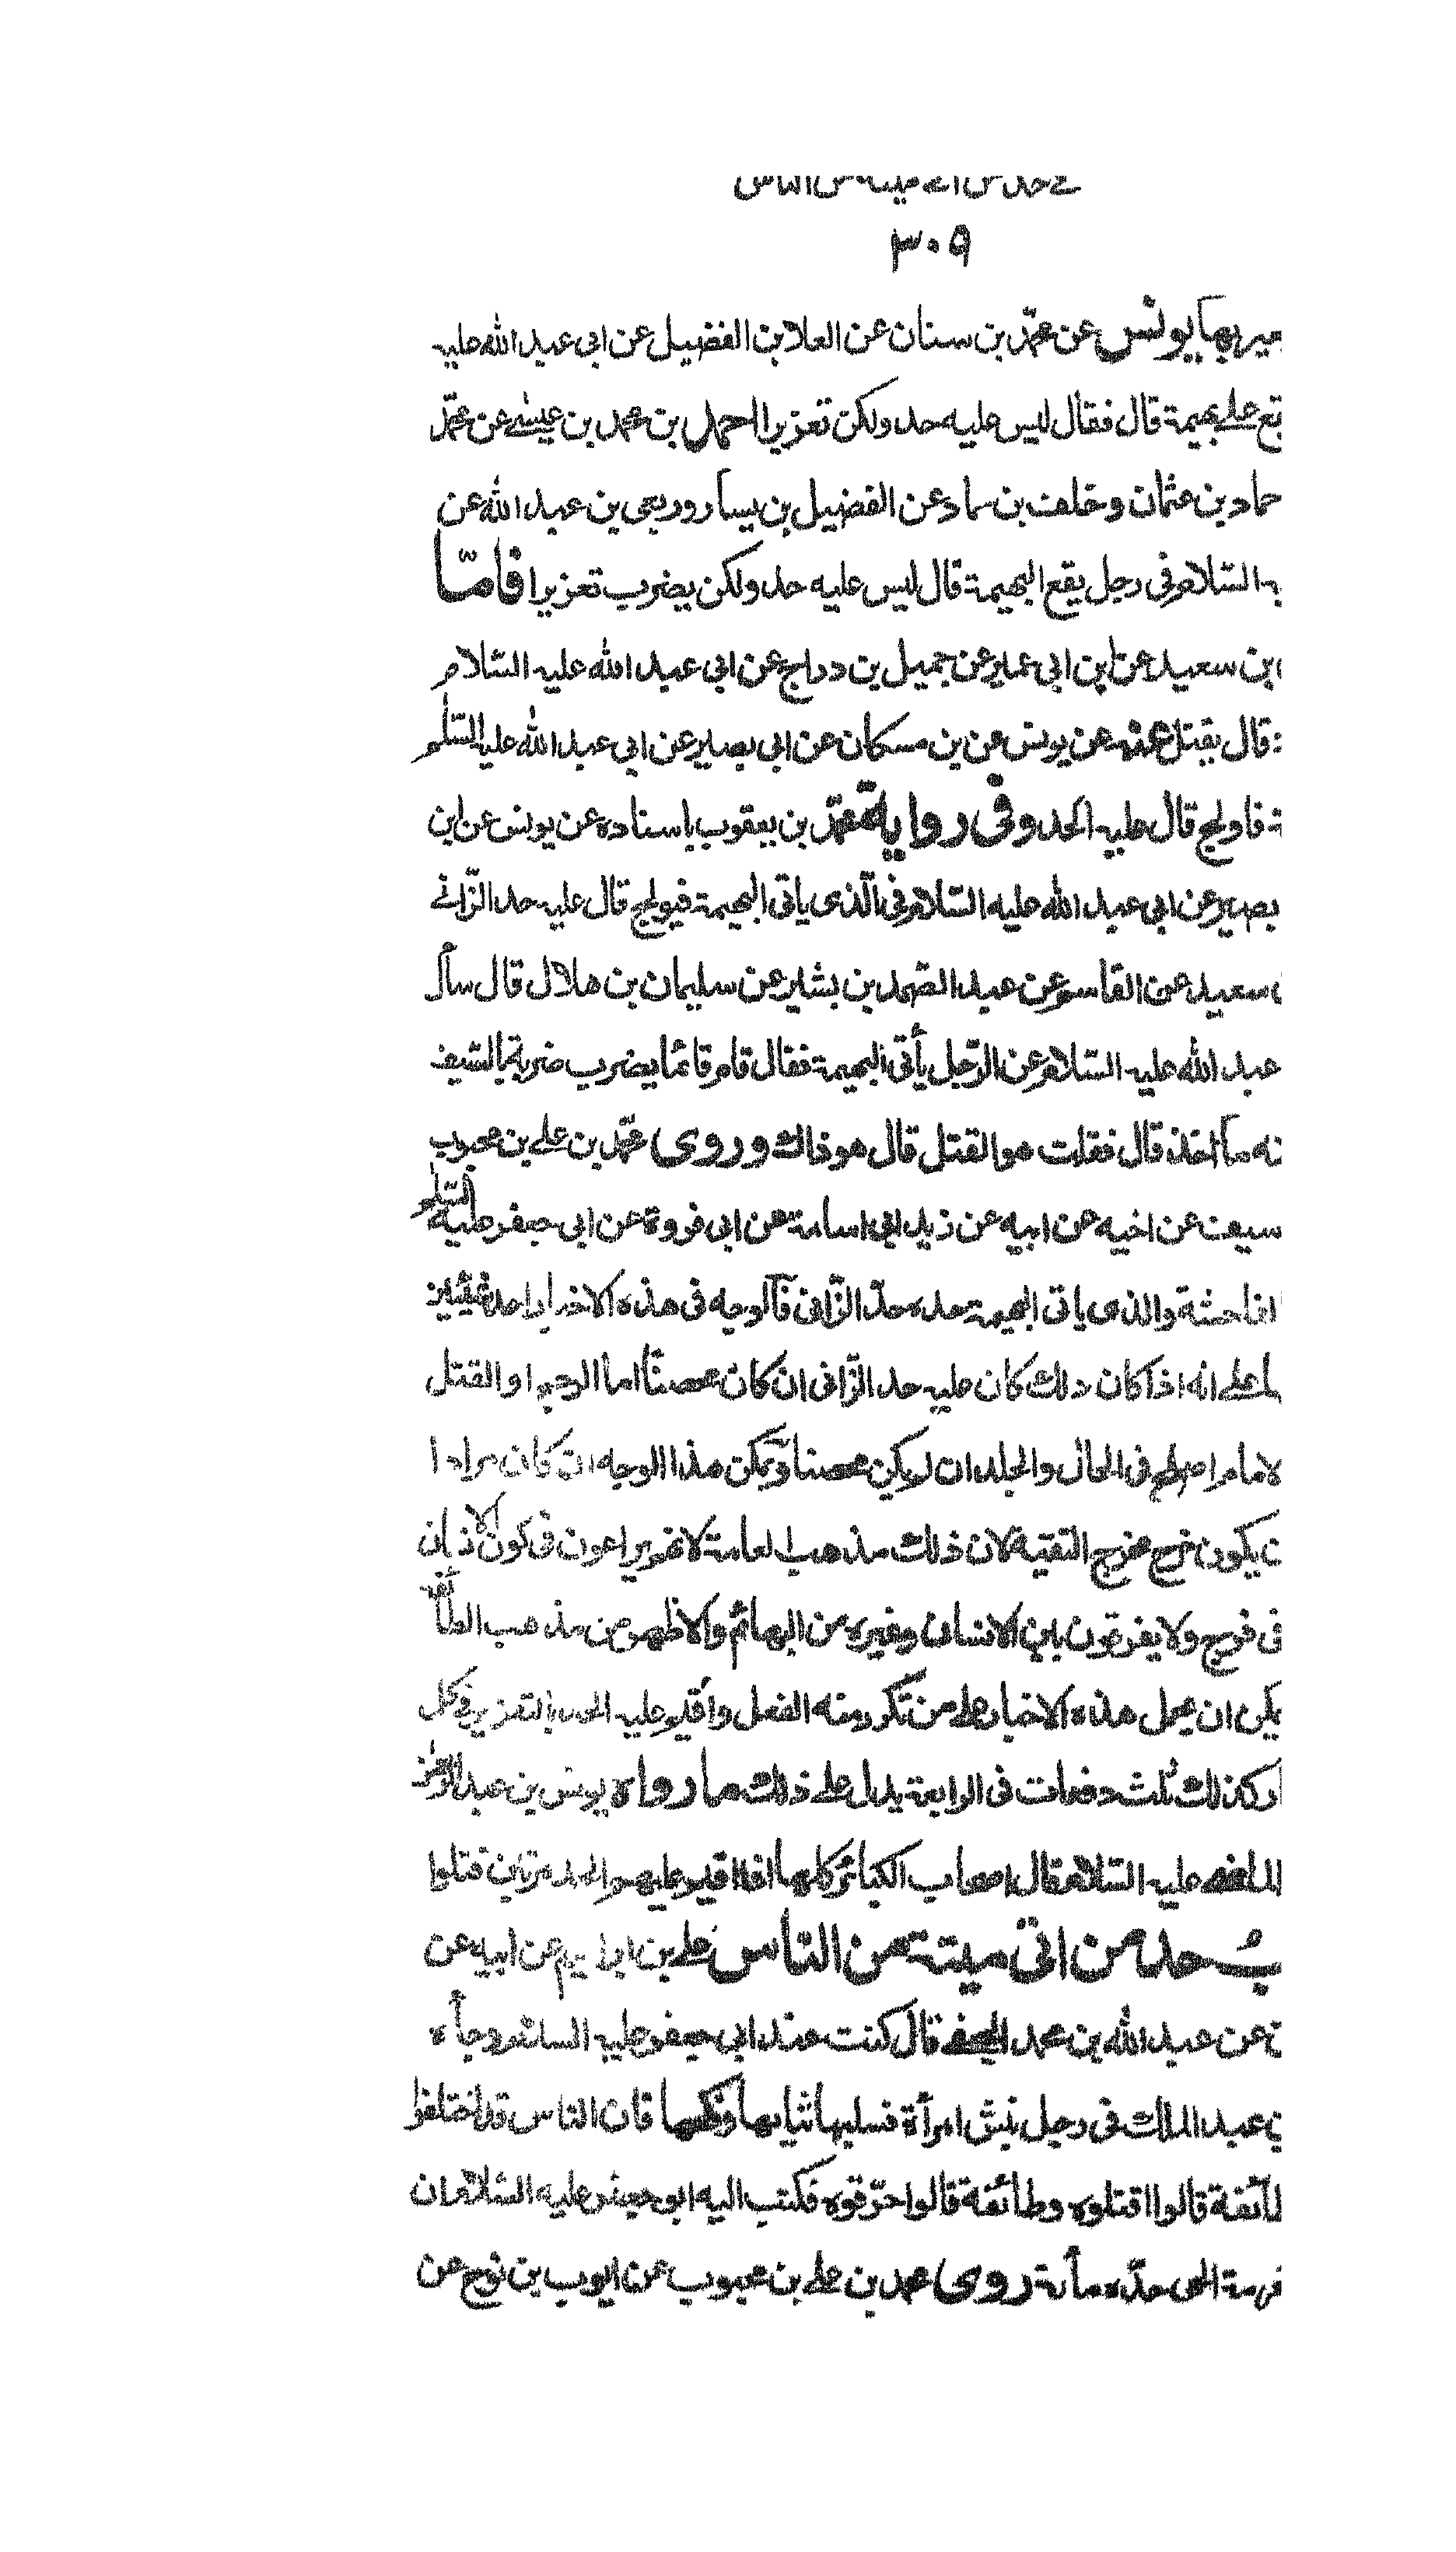 في حد من اتى ميتة من الناس
٣٠٩
يعير بها يونس عن محمّد بن سنان عن العلا بن الفضيل عن ابي عبد الله عليه
يقع على بهيمة قال فقال ليس عليه حد ولكن تعزيرا احمد بن محمد بن عيسى عن محمّد
حماد بن عثمان وخلف بن حماد عن الفضيل بن يسار وربعى بن عبد الله عن
السّلام في رجل يقع البهيمة قال ليس عليه حد ولكن يضرب تعزيرا فامّا
بن سعيد عن ابن ابي عمير عن جميل بن دراج عن ابي عبد الله عليه السّلام
قال يقتل عنه عن يونس عن بن مسكان عن ابي بصير عن ابي عبد الله عليه السّلم
فاولج قال عليه الحد وفي رواية محمّد بن يعقوب باسناده عن يونس عن ابن
بصير عن ابي عبد الله عليه السّلام في الّذى ياتى البهيمة فيولج قال عليه حد الزّانى
سعيد عن القاسم عن عبد الصّمد بن بشير عن سليمان بن هلال قال سأل
عبد الله عليه السّلام عن الرّجل يأتى البهيمة فقال قام قائما يضرب ضربة بالسّيف
منه ما اخذ قال فقلت هو القتل قال هو ذاك وروى محمّد بن على بن محبوب
سيف عن اخيه عن ابيه عن زيد ابى اسامة عن ابى فروة عن ابى جعفر عليه السّلم
الفاحشة والذى ياتى البهيمة حده حدّ الزّانى فالوجه فى هذه الاخبار احد شيئين
على انه اذا كان ذلك كان عليه حد الزّانى ان كان محصنًا اما الرجم او القتل
الامام اصلح فى الحال والجلد ان لم يكن محصنا ويمكن هذا الوجه ان كان مرادا
ان يكون خرج مخرج التقية لان ذلك مذهب العامة لانهم يراعون فى كون الانسان
فى فرج ولا يفرقون بين الانسان وغيره من البهائم والاظهر من مذهب الطائفة
يمكن ان يحمل هذه الاخبار على من تكرر منه الفعل واقيم عليه الحد بالتعزير فى كل
كذلك ثلث دفعات فى الرابعة يدل على ذلك ما رواه يونس بن عبد الرّحمن
الماضى عليه السّلام قال اصحاب الكبائر كلها اذا اقيم عليهم الحد مرتين قتلوا
باب حد من اتى ميتة من الناس على بن ابراهيم عن ابيه عن
عن عبد الله بن محمد الجعفى قال كنت عند ابى جعفر عليه السلام وجاءه
بن عبد الملك فى رجل نبش امرأة فسلبها ثيابها ونكحها فان الناس قد اختلفوا
طائفة قالوا اقتلوه وطائفة قالوا حرّقوه فكتب اليه ابو جعفر عليه السّلام ان
حرمة الحى حدّه مائة روى محمد بن على بن محبوب عن ايوب بن نوح عن